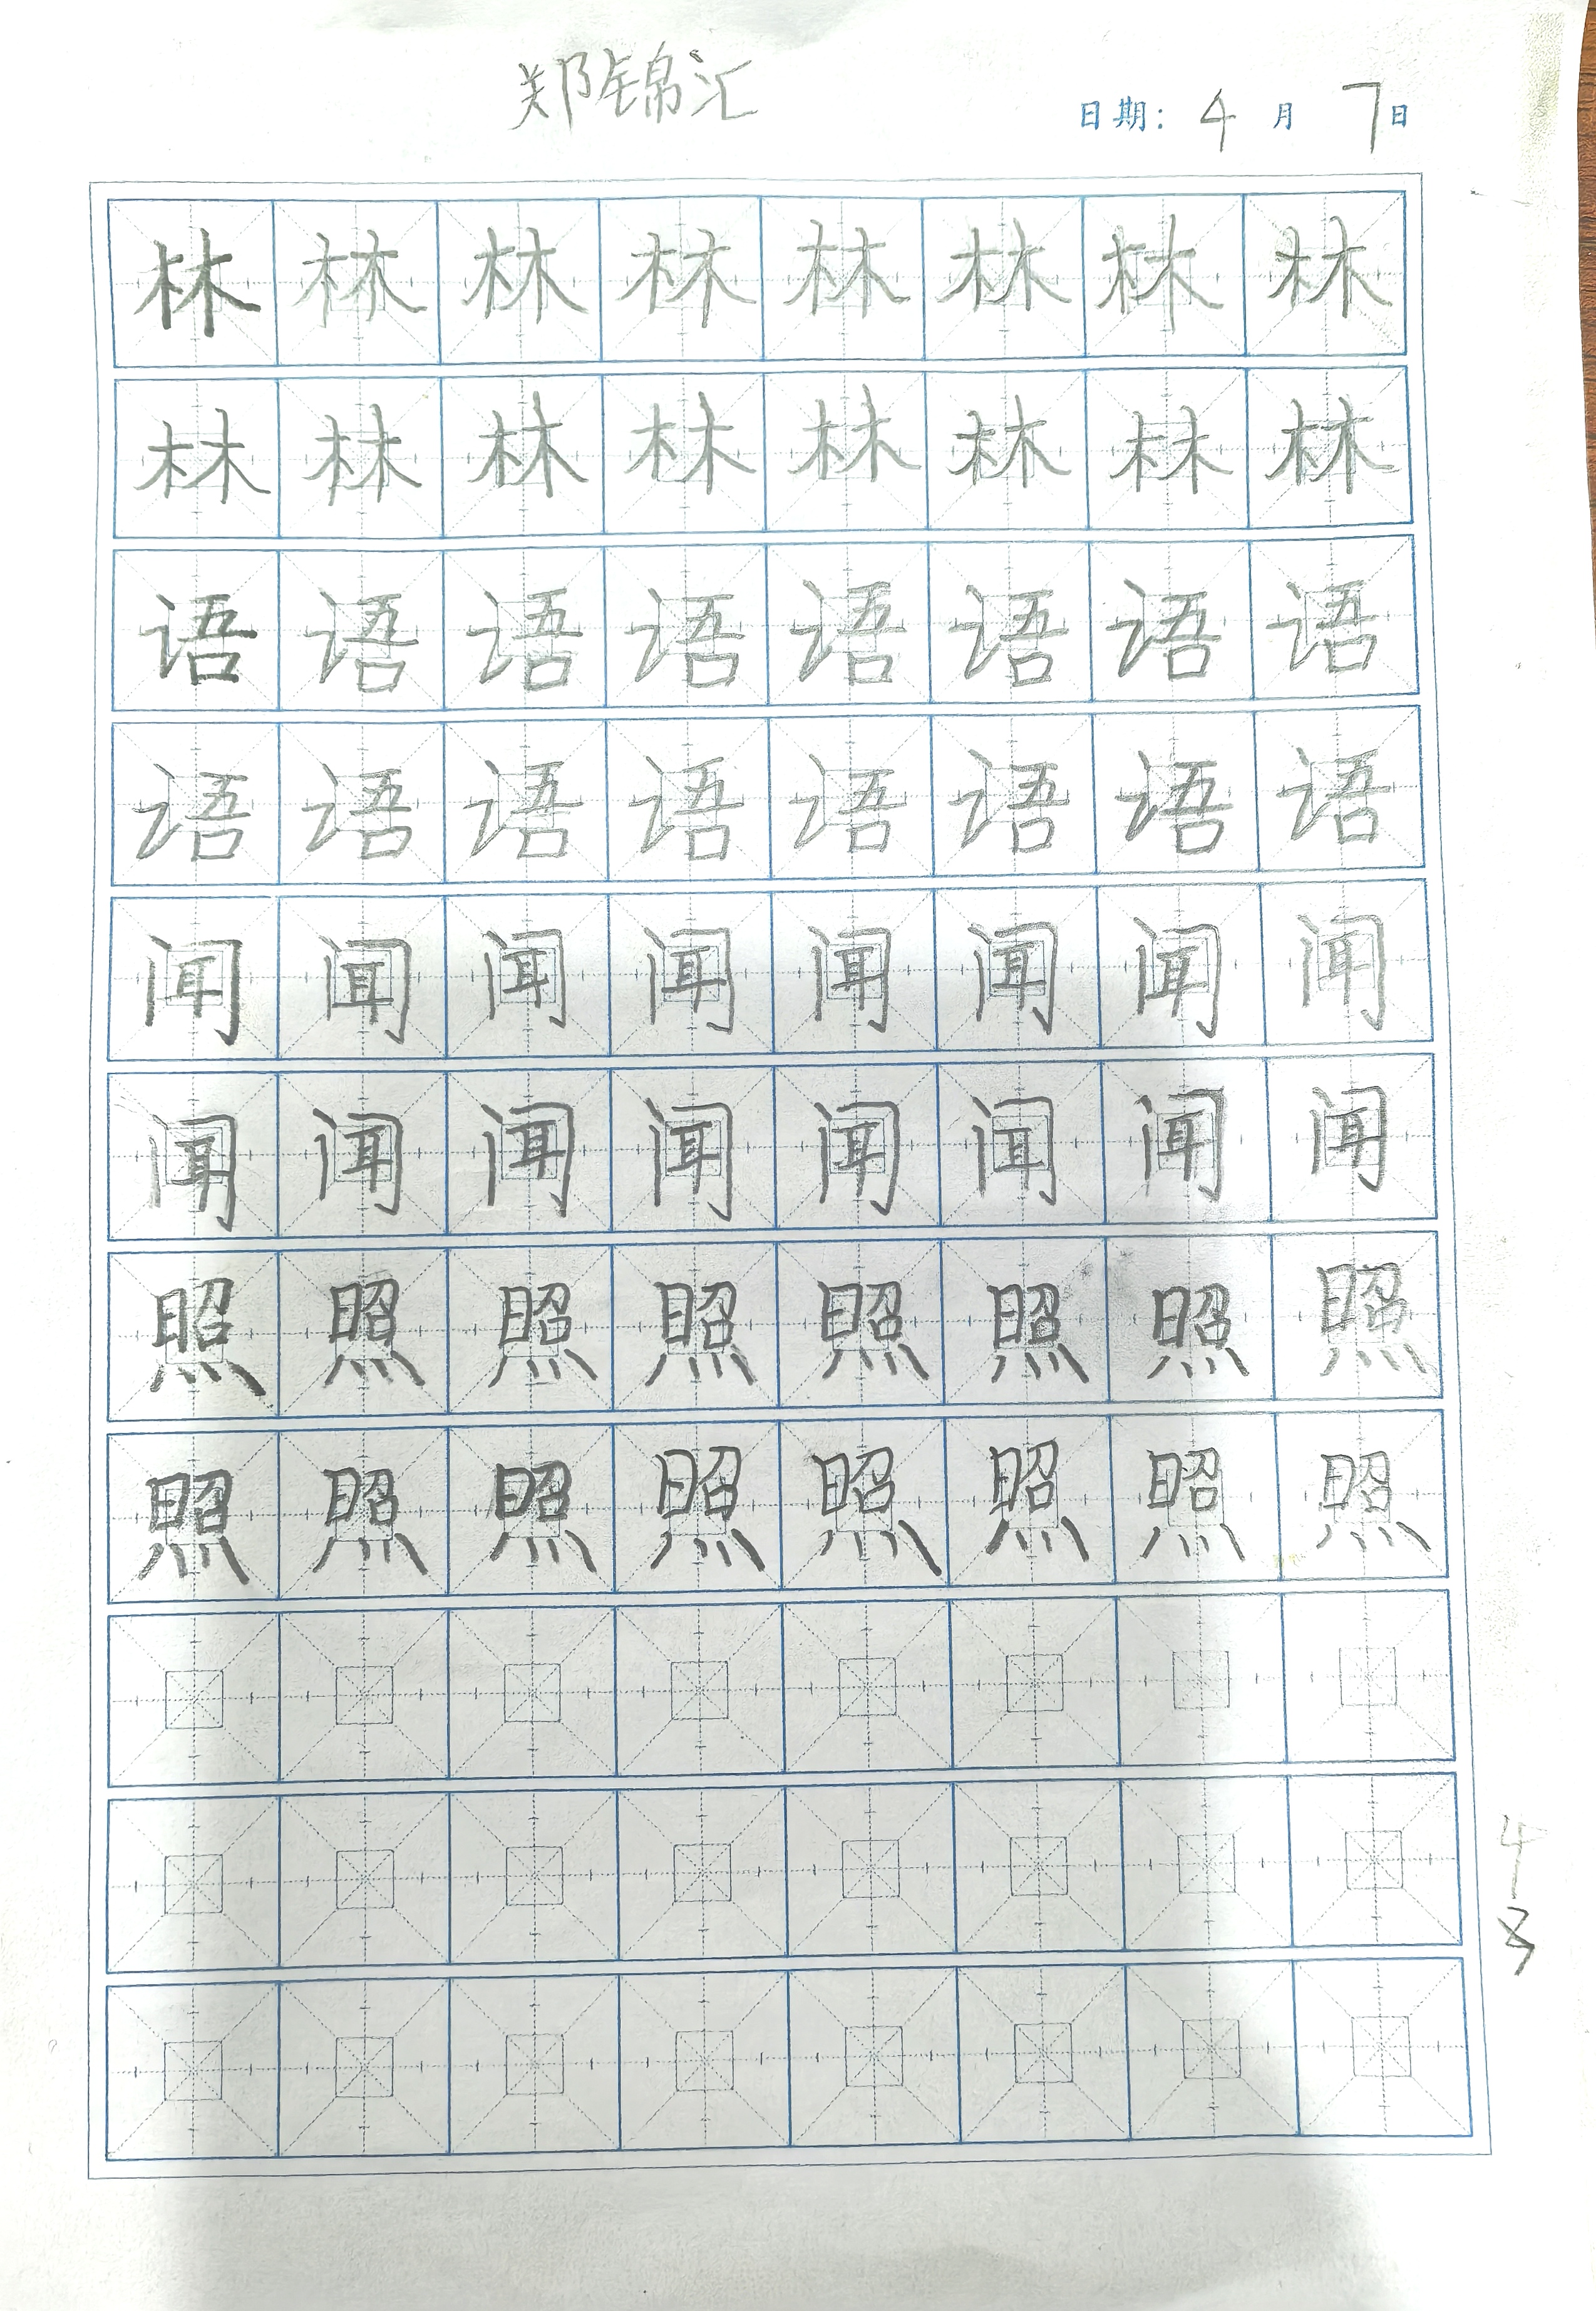 郑锦汇
日期: 4 月 7 日
林 林 林 林 林 林 林 林
林 林 林 林 林 林 林 林
语 语 语 语 语 语 语 语
语 语 语 语 语 语 语 语
闻 闻 闻 闻 闻 闻 闻 闻
闻 闻 闻 闻 闻 闻 闻 闻
照 照 照 照 照 照 照 照
照 照 照 照 照 照 照 照
4